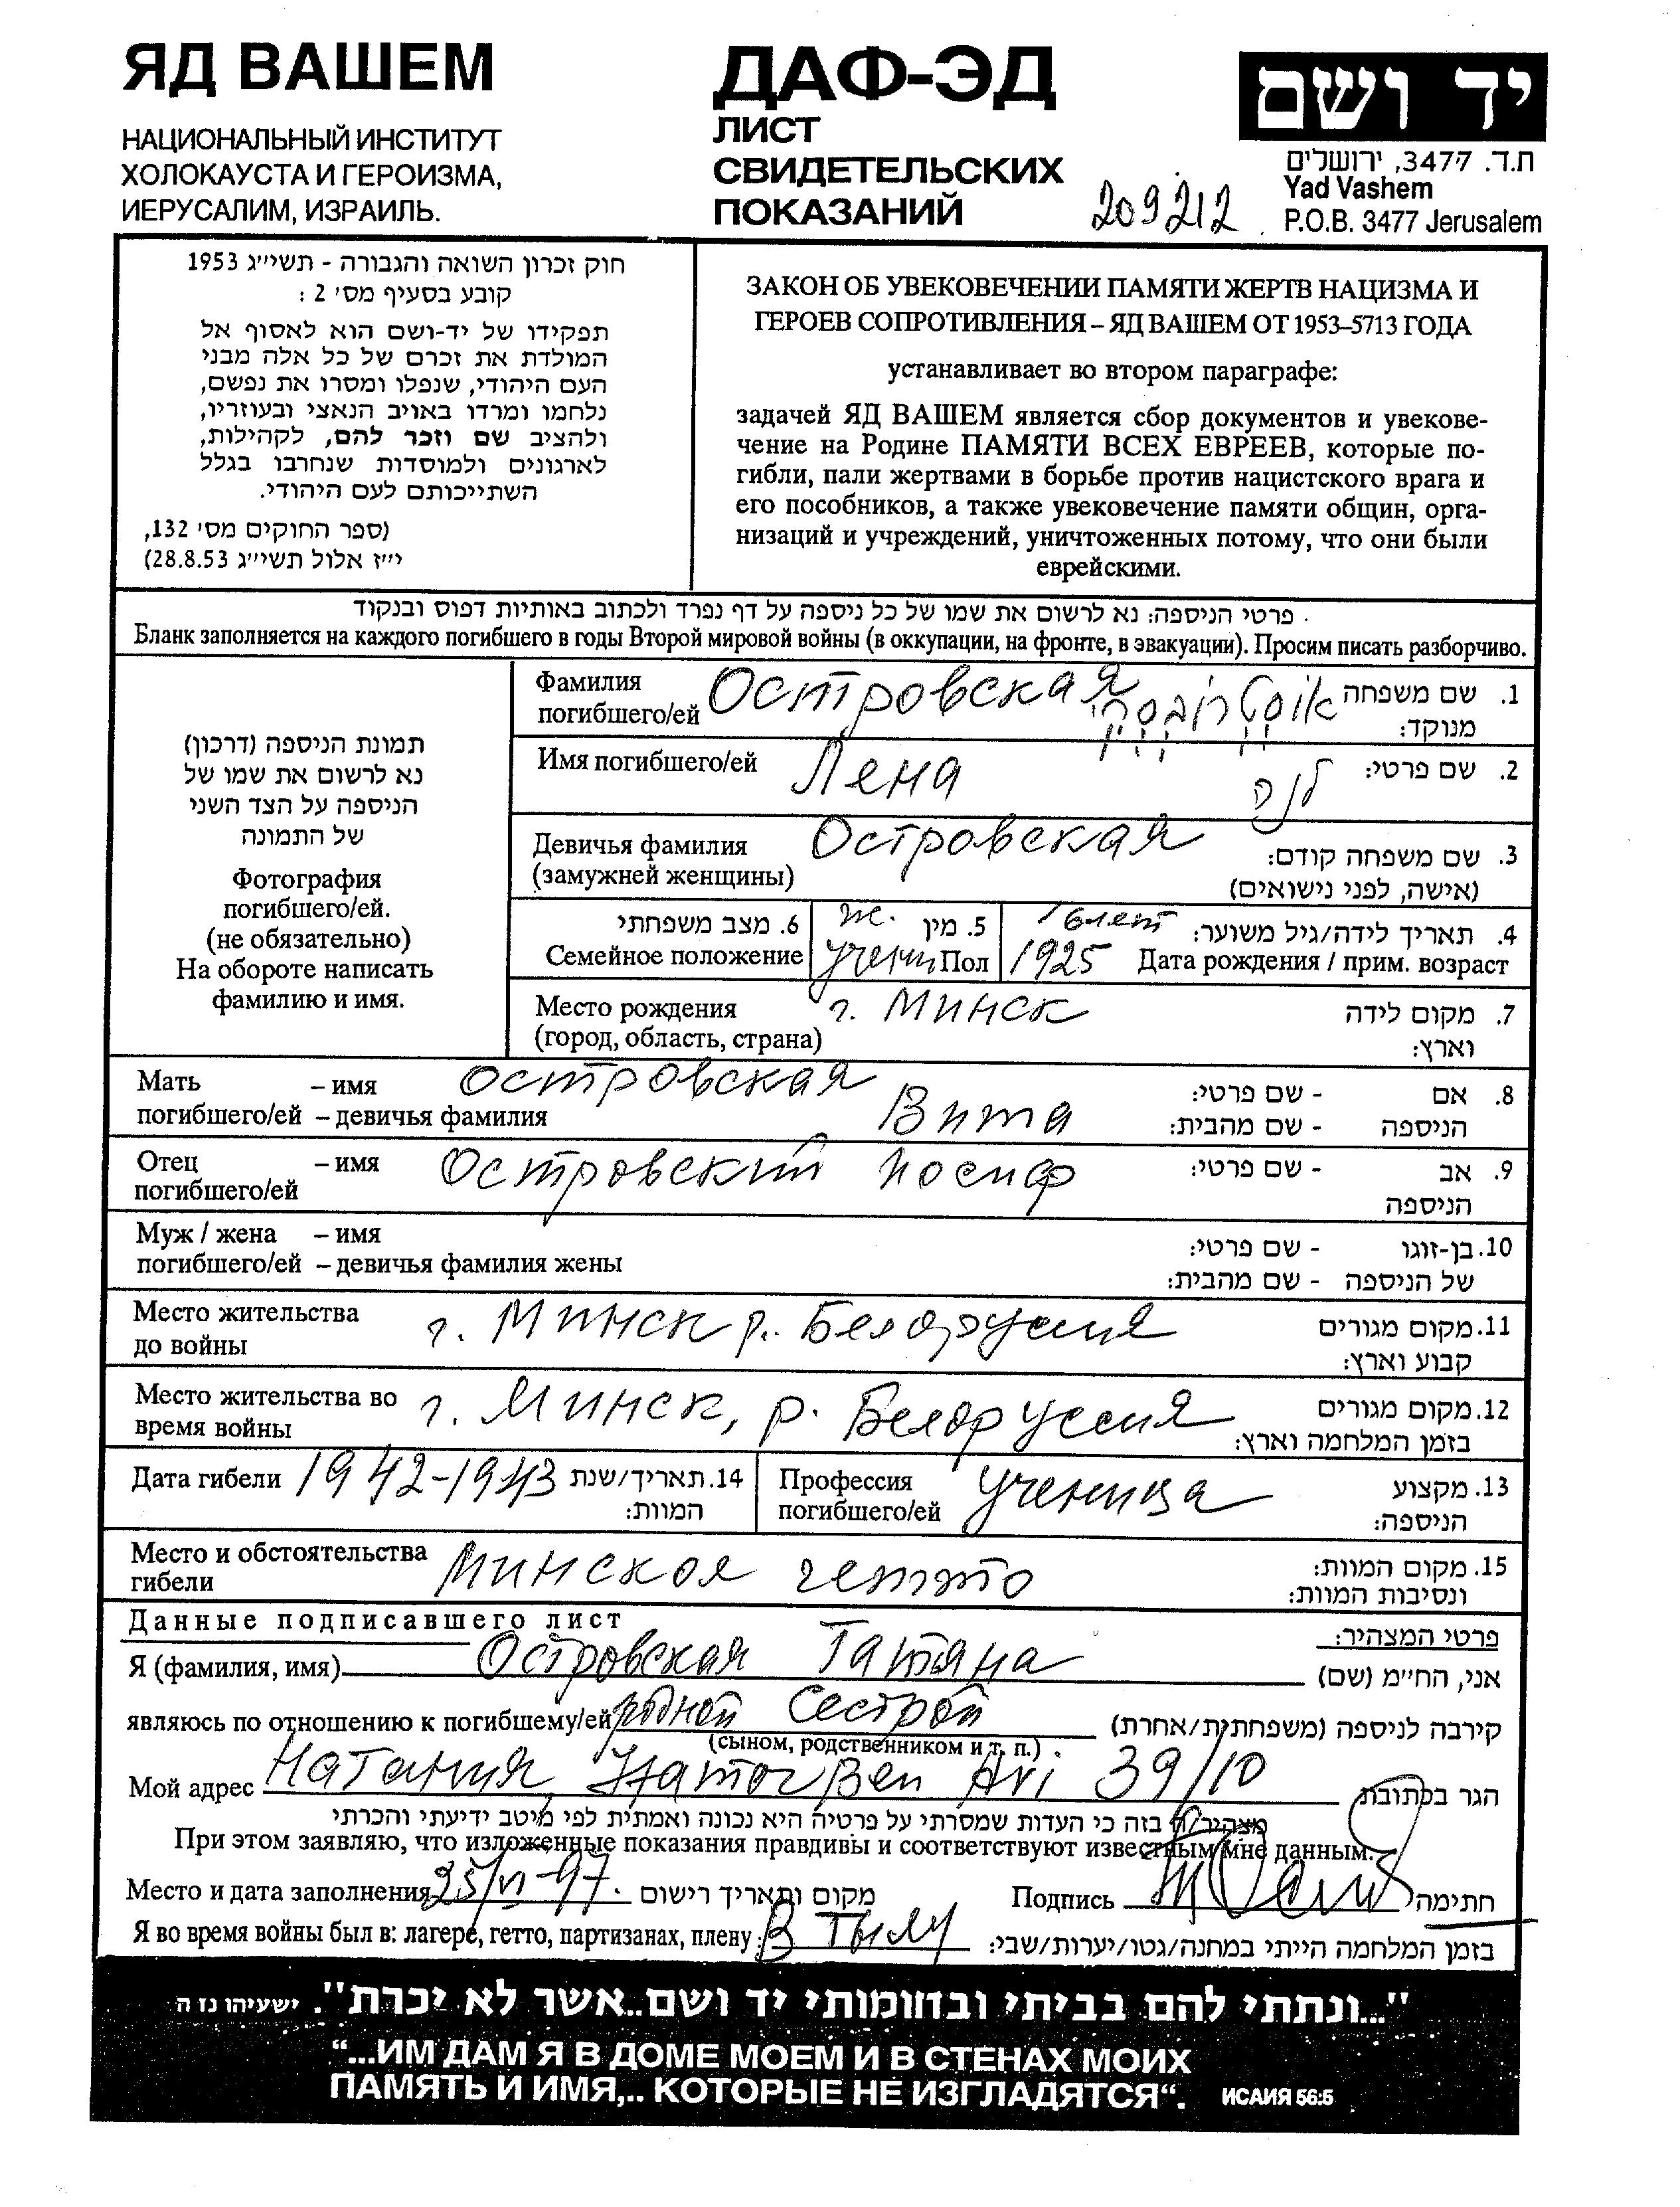 ЯД ВАШЕМ
НАЦИОНАЛЬНЫЙ ИНСТИТУТ
ХОЛОКАУСТА И ГЕРОИЗМА,
ИЕРУСАЛИМ, ИЗРАИЛЬ.
ДАФ-ЭД
ЛИСТ
СВИДЕТЕЛЬСКИХ
ПОКАЗАНИЙ
209212
יד ושם
ת.ד. 3477, ירושלים
Yad Vashem
P.O.B. 3477 Jerusalem
חוק זכרון השואה והגבורה - תשי״ג 1953
קובע בסעיף מס׳ 2 :
תפקידו של יד-ושם הוא לאסוף אל
המולדת את זכרם של כל אלה מבני
העם היהודי, שנפלו ומסרו את נפשם,
נלחמו ומרדו באויב הנאצי ובעוזריו,
ולהציב שם וזכר להם, לקהילות,
לארגונים ולמוסדות שנחרבו בגלל
השתייכותם לעם היהודי.
(ספר החוקים מס׳ 132,
י״ז אלול תשי״ג 28.8.53)
ЗАКОН ОБ УВЕКОВЕЧЕНИИ ПАМЯТИ ЖЕРТВ НАЦИЗМА И
ГЕРОЕВ СОПРОТИВЛЕНИЯ – ЯД ВАШЕМ ОТ 1953–5713 ГОДА
устанавливает во втором параграфе:
задачей ЯД ВАШЕМ является сбор документов и увекове-
чение на Родине ПАМЯТИ ВСЕХ ЕВРЕЕВ, которые по-
гибли, пали жертвами в борьбе против нацистского врага и
его пособников, а также увековечение памяти общин, орга-
низаций и учреждений, уничтоженных потому, что они были
еврейскими.
פרטי הניספה: נא לרשום את שמו של כל ניספה על דף נפרד ולכתוב באותיות דפוס ובנקוד
Бланк заполняется на каждого погибшего в годы Второй мировой войны (в оккупации, на фронте, в эвакуации). Просим писать разборчиво.
תמונת הניספה (דרכון)
נא לרשום את שמו של
הניספה על הצד השני
של התמונה
Фотография
погибшего/ей.
(не обязательно)
На обороте написать
фамилию и имя.
Фамилия Островская 1. שם משפחה
погибшего/ей מנוקד:
Имя погибшего/ей Лена לנה 2. שם פרטי:
Девичья фамилия Островская 3. שם משפחה קודם:
(замужней женщины) (אישה, לפני נישואים)
6. מצב משפחתי ж. 5. מין 16 лет 4. תאריך לידה/גיל משוער:
Семейное положение учени Пол 1925 Дата рождения / прим. возраст
Место рождения г. Минск 7. מקום לידה
(город, область, страна) וארץ:
Мать – имя Островская 8. אם - שם פרטי:
погибшего/ей – девичья фамилия Вита הניספה - שם מהבית:
Отец – имя Островский Иосиф 9. אב - שם פרטי:
погибшего/ей הניספה
Муж / жена – имя 10. בן-זוגו - שם פרטי:
погибшего/ей – девичья фамилия жены של הניספה - שם מהבית:
Место жительства г. Минск р. Белоруссия 11. מקום מגורים
до войны קבוע וארץ:
Место жительства во г. Минск, р. Белоруссия 12. מקום מגורים
время войны בזמן המלחמה וארץ:
Дата гибели 1942-1943 14. תאריך/שנת המוות:
Профессия ученица 13. מקצוע
погибшего/ей הניספה:
Место и обстоятельства Минское гетто 15. מקום המוות:
гибели ונסיבות המוות:
Данные подписавшего лист פרטי המצהיר:
Я (фамилия, имя) Островская Татяна אני, החי״מ (שם)
являюсь по отношению к погибшему/ей родной Сестрой קירבה לניספה (משפחתית/אחרת)
(сыном, родственником и т. п.)
Мой адрес Натания Ben Avi 39/10 הגר בכתובת
מצהיר/ה בזה כי העדות שמסרתי על פרטיה היא נכונה ואמתית לפי מיטב ידיעתי והכרתי
При этом заявляю, что изложенные показания правдивы и соответствуют известным мне данным.
Место и дата заполнения 25/VI-97. מקום ותאריך רישום Подпись חתימה
Я во время войны был в: лагере, гетто, партизанах, плену: В Тылу בזמן המלחמה הייתי במחנה/גטו/יערות/שבי:
"...ונתתי להם בביתי ובחומותי יד ושם..אשר לא יכרת". ישעיהו נז ה
“...ИМ ДАМ Я В ДОМЕ МОЕМ И В СТЕНАХ МОИХ
ПАМЯТЬ И ИМЯ,.. КОТОРЫЕ НЕ ИЗГЛАДЯТСЯ“. ИСАИЯ 56:5